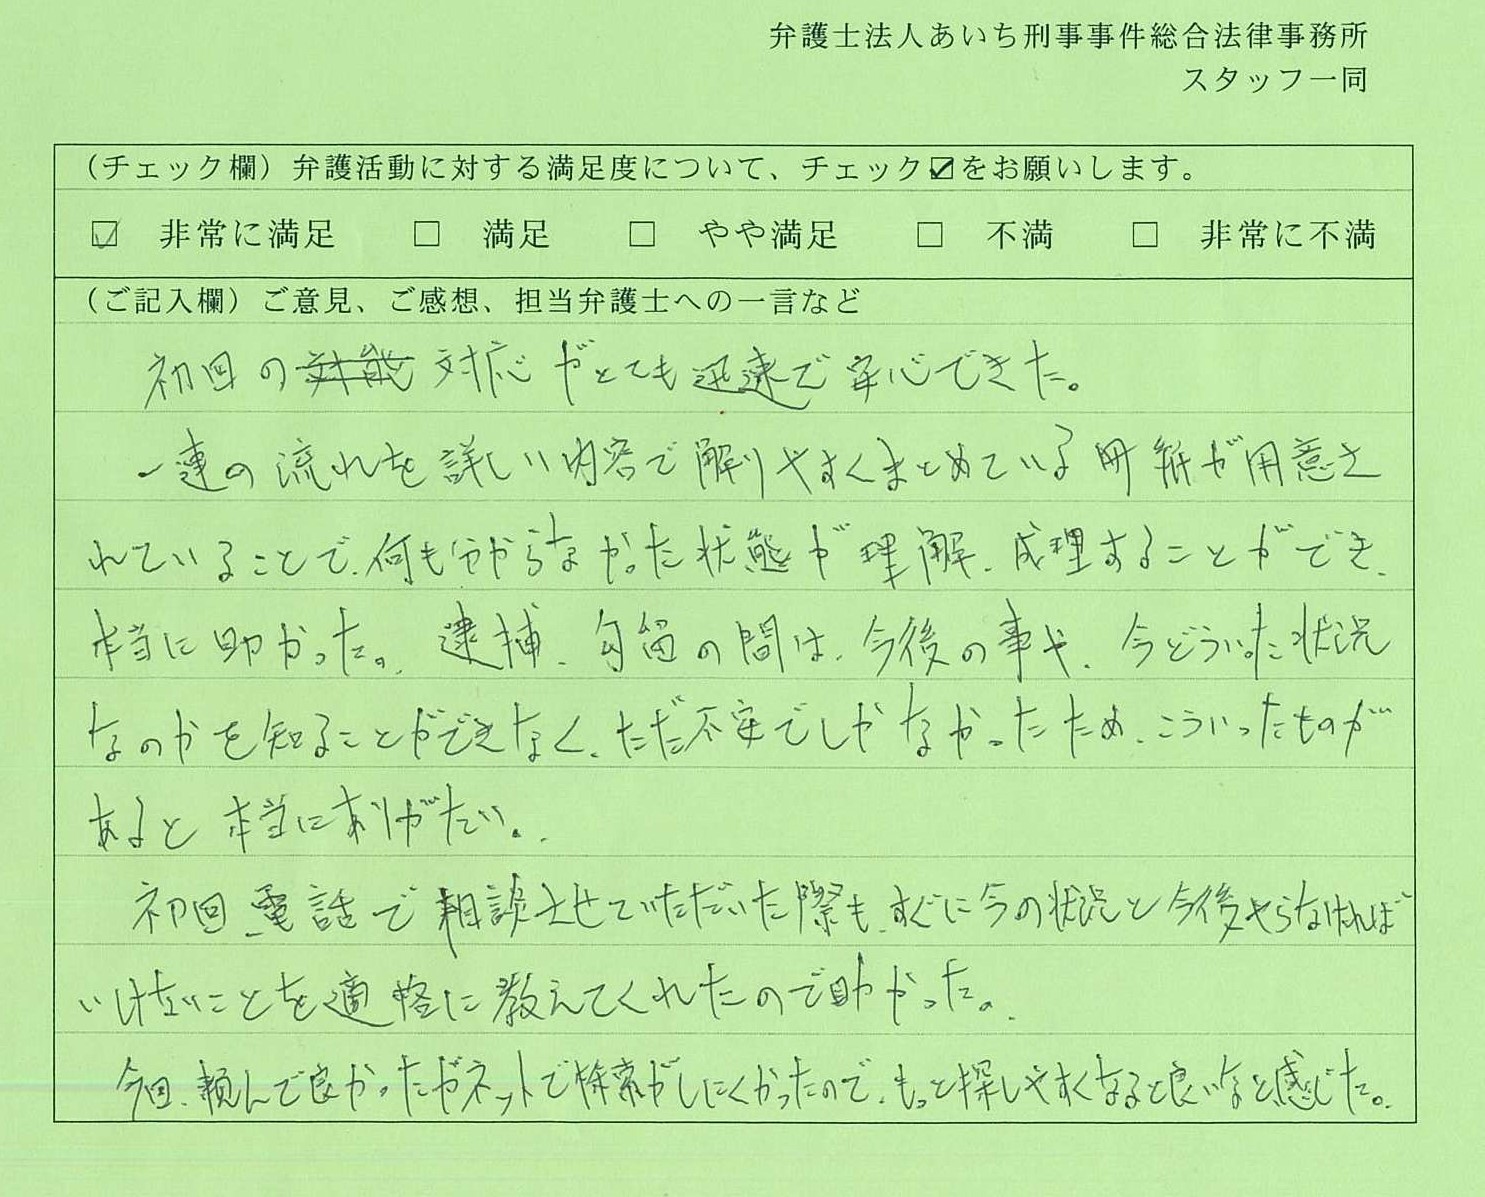 弁護士法人あいち刑事事件総合法律事務所
スタッフ一同
（チェック欄）弁護活動に対する満足度について、チェック☑をお願いします。
☑ 非常に満足 □ 満足 □ やや満足 □ 不満 □ 非常に不満
（ご記入欄）ご意見、ご感想、担当弁護士への一言など
初回の対応がとても迅速で安心できた。
一連の流れを詳しい内容で解りやすくまとめている用紙が用意さ
れていることで、何も分からなかった状態が理解、成理することができ、
本当に助かった。逮捕、勾留の間は、今後の事や、今どういった状況
なのかを知ることができなく、ただ不安でしかなかったため、こういったものが
あると本当にありがたい。
初回、電話で相談させていただいた際も、すぐに今の状況と今後やらなければ
いけないことを適格に教えてくれたので助かった。
今回、頼んで良かったがネットで検索がしにくかったので、もっと探しやすくなると良いなと感じた。